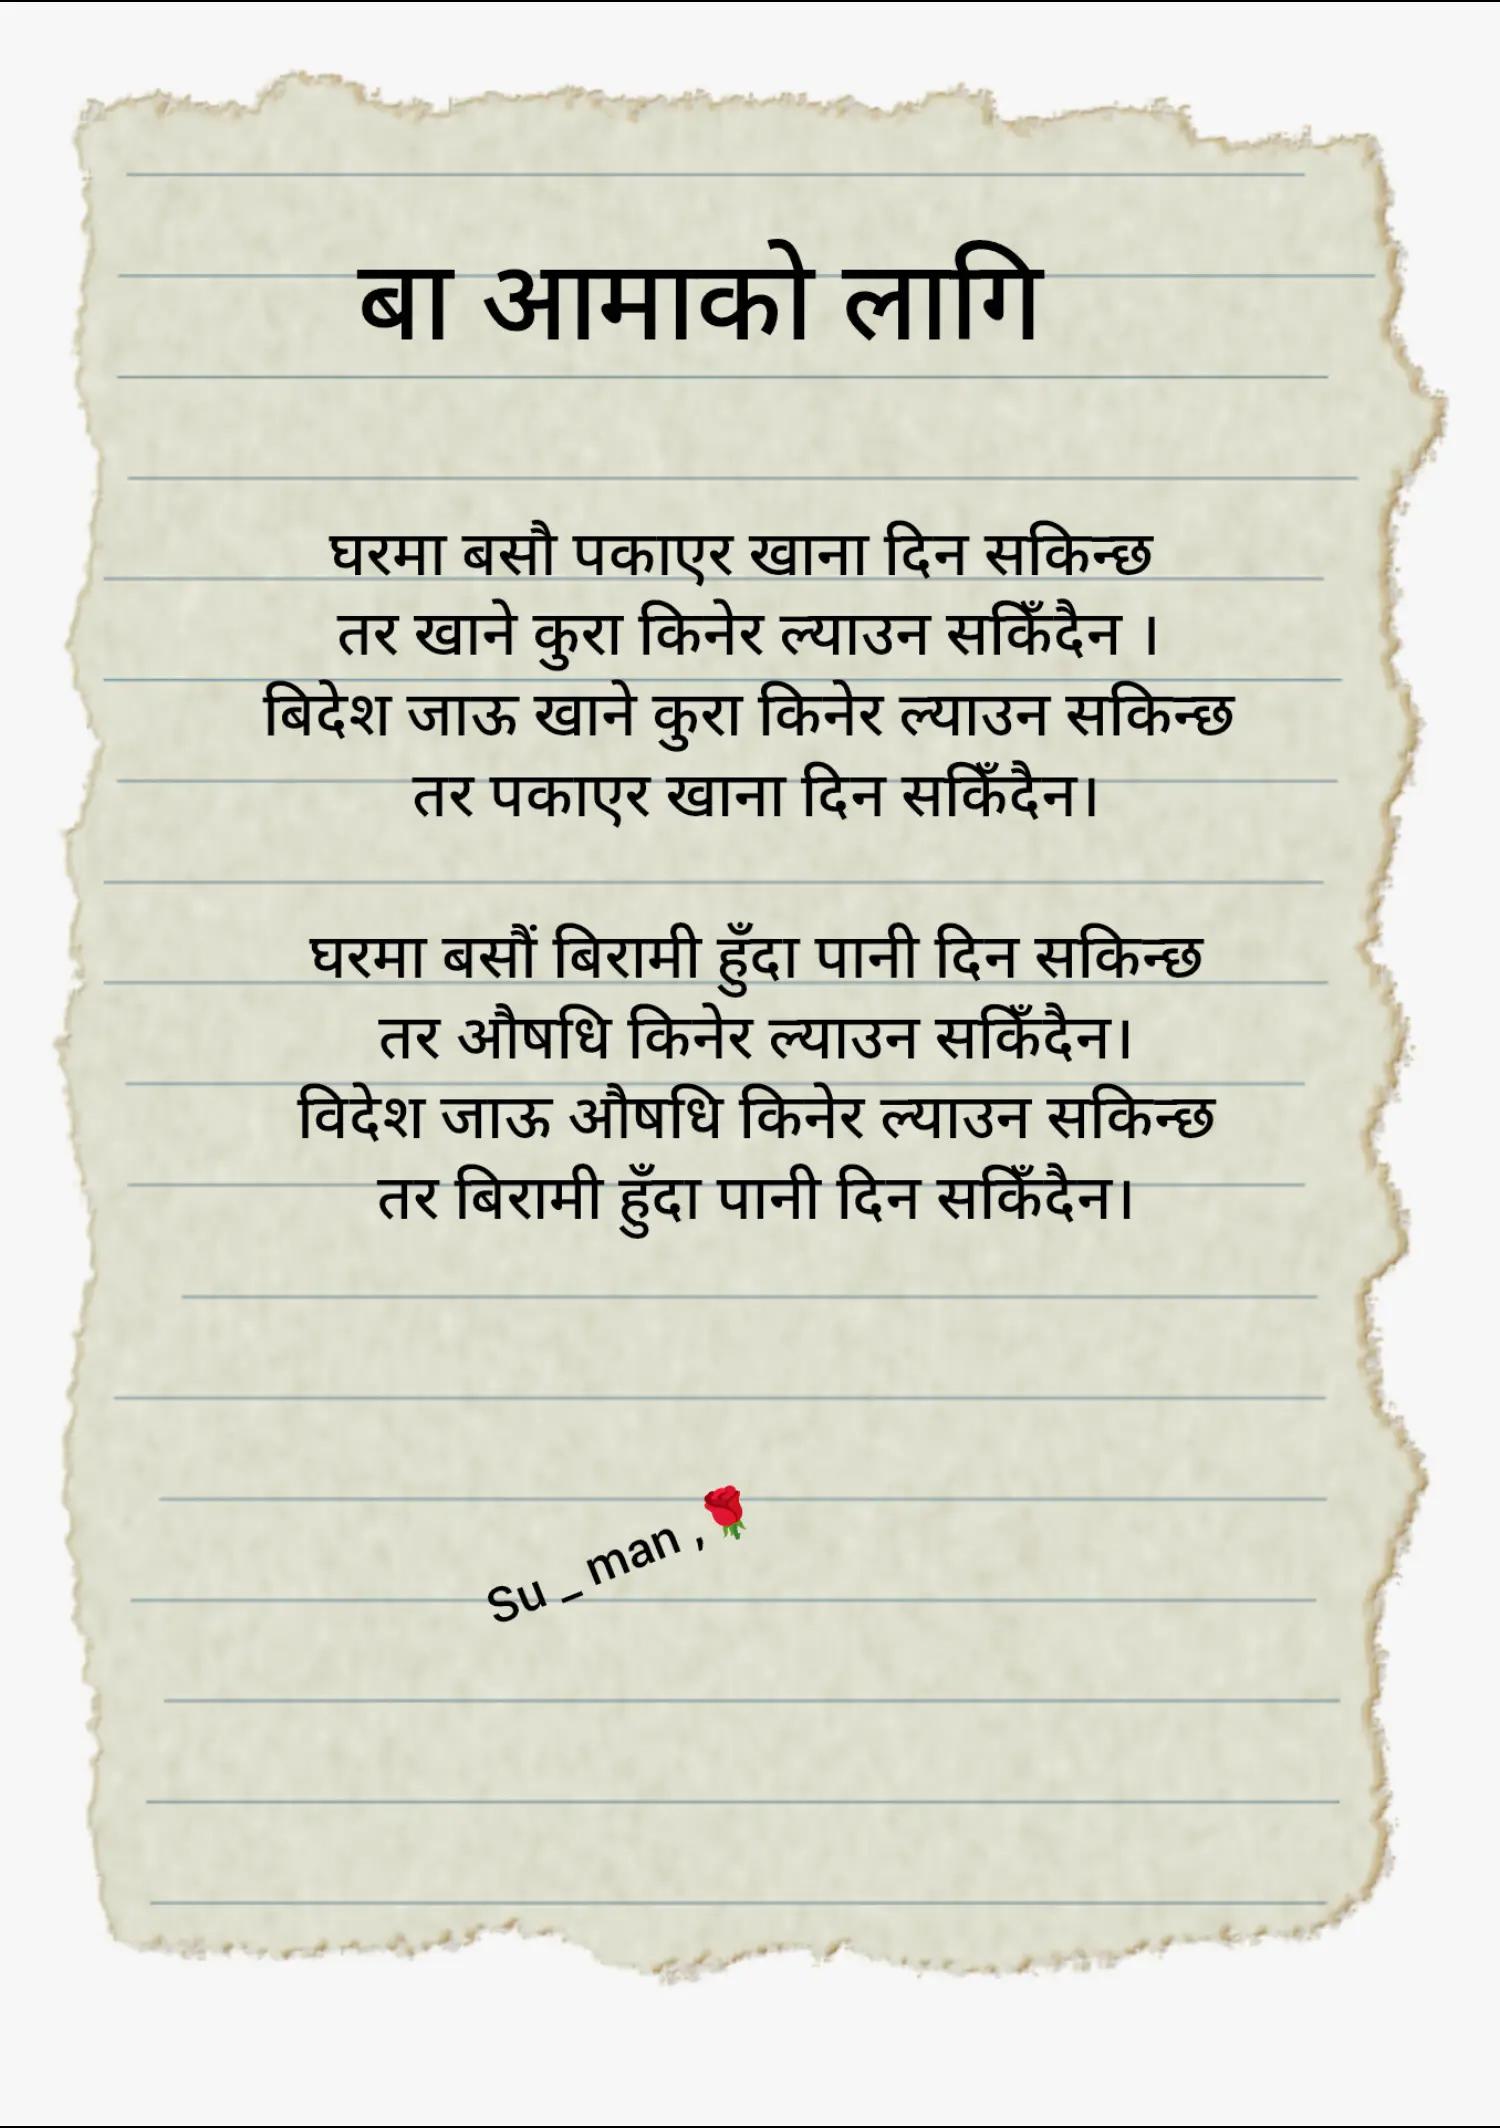 बा आमाको लागि
घरमा बसौ पकाएर खाना दिन सकिन्छ
तर खाने कुरा किनेर ल्याउन सकिँदैन ।
बिदेश जाऊ खाने कुरा किनेर ल्याउन सकिन्छ
तर पकाएर खाना दिन सकिँदैन।
घरमा बसौं बिरामी हुँदा पानी दिन सकिन्छ
तर औषधि किनेर ल्याउन सकिँदैन।
विदेश जाऊ औषधि किनेर ल्याउन सकिन्छ
तर बिरामी हुँदा पानी दिन सकिँदैन।
Su _ man ,🌹